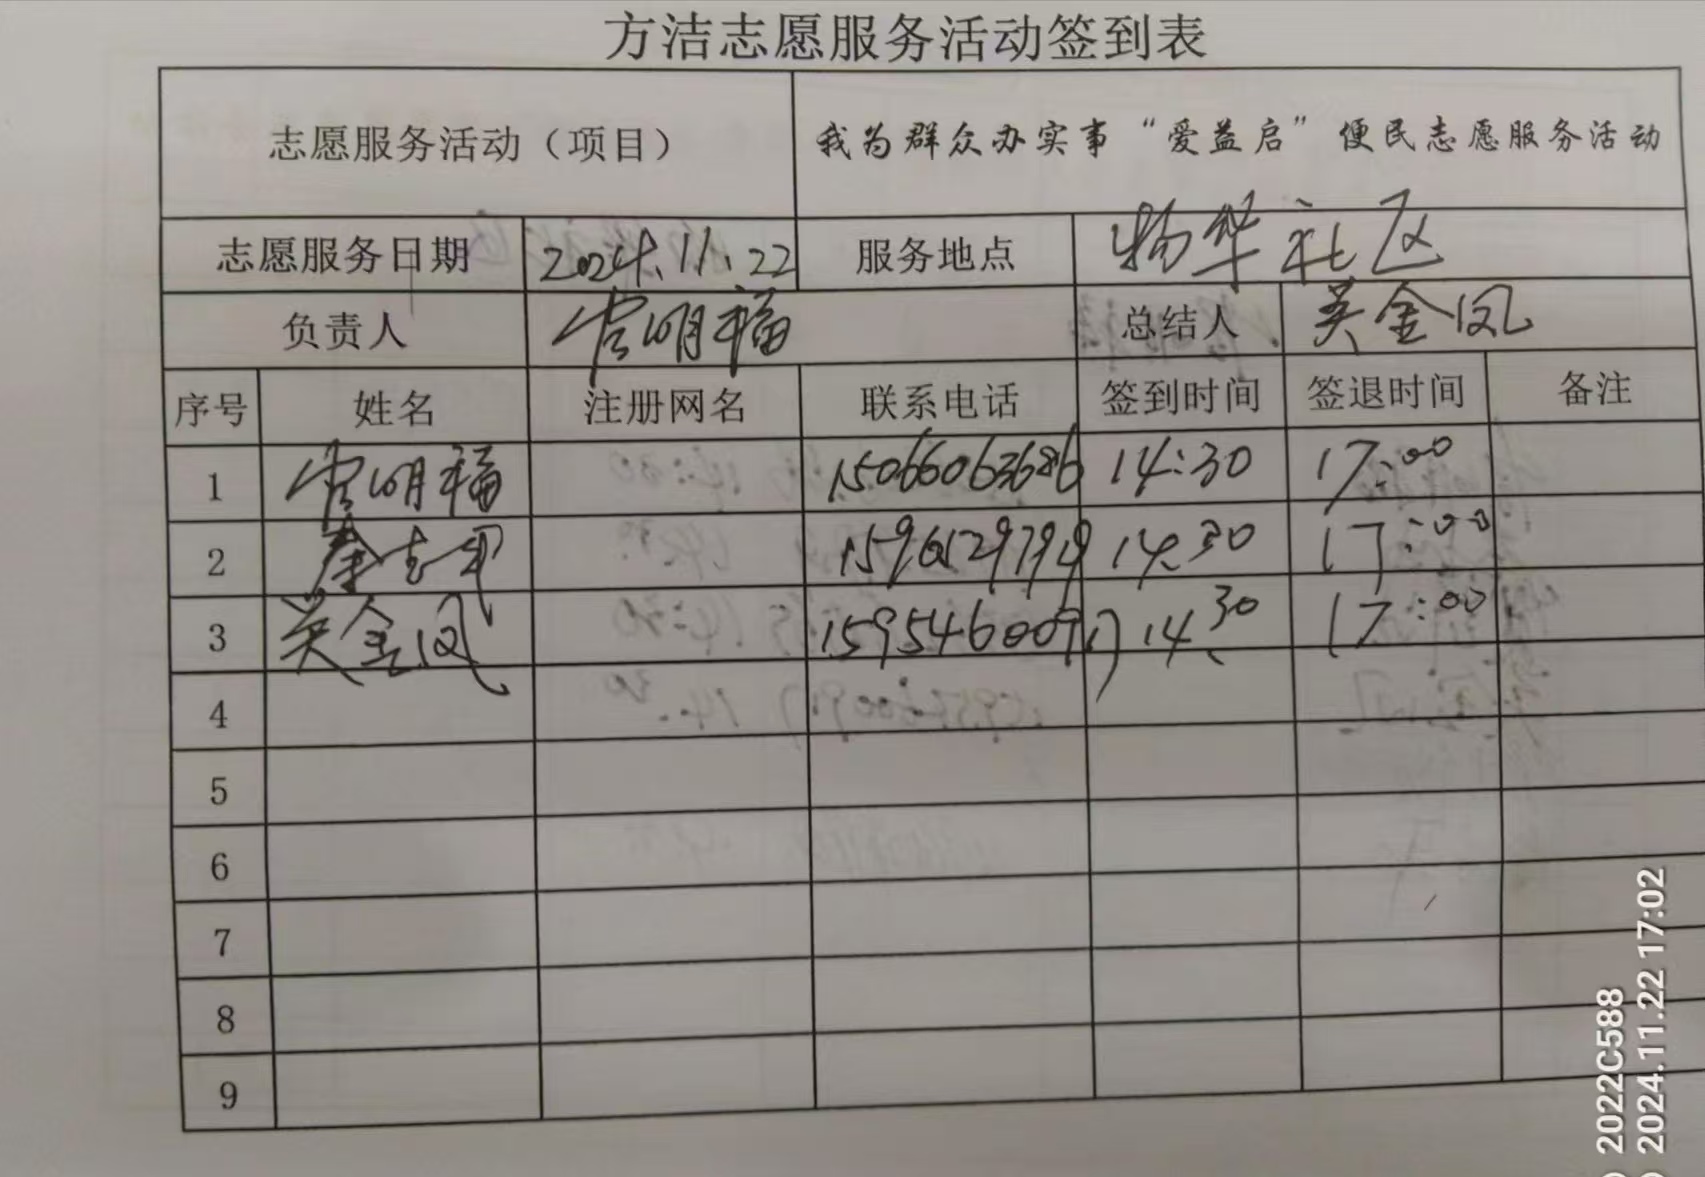 方洁志愿服务活动签到表
志愿服务活动（项目） 我为群众办实事“爱益启”便民志愿服务活动
志愿服务日期 2024.11.22 服务地点 物华社区
负责人 明福 总结人 吴金凤
序号 姓名 注册网名 联系电话 签到时间 签退时间 备注
1 明福 15066063686 14:30 17:00
2 秦志 14:30 17:00
3 吴金凤 14:30 17:00
4
5
6
7
8
9
2022C588
2024.11.22 17:02